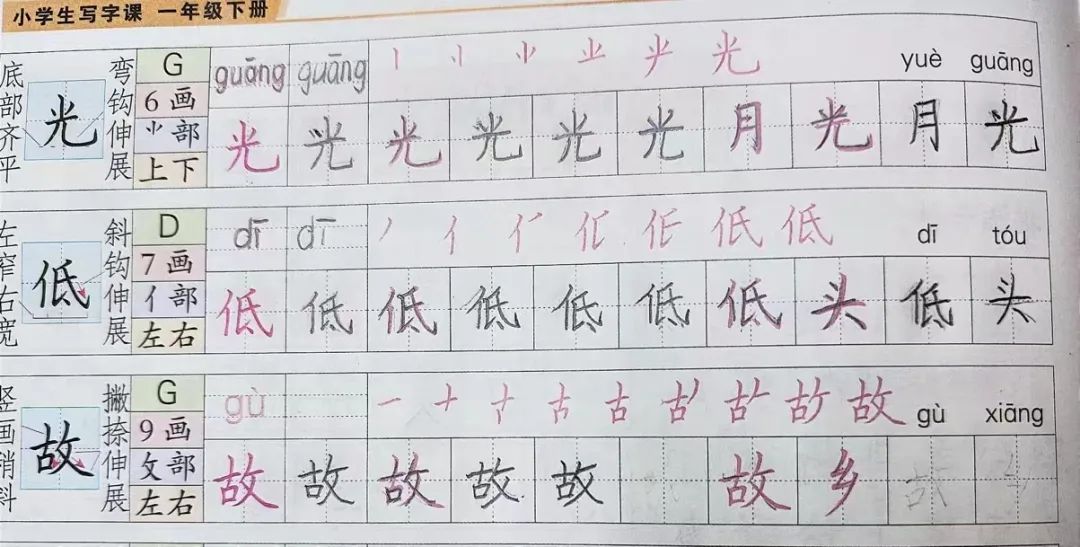 小学生写字课 一年级下册
底部齐平 光 弯钩伸展
G
6画
⺌部
上下
guāng guāng 丨 丨丶 ⺌ 光 yuè guāng
光 光 光 光 光 光 月 光 月 光
左窄右宽 低 斜钩伸展
D
7画
亻部
左右
dī dī 丿 亻 低 低 dī tóu
低 低 低 低 低 低 低 头 低 头
竖画稍斜 故 撇捺伸展
G
9画
攵部
左右
gù 一 十 古 古 故 gù xiāng
故 故 故 故 故 故 乡 故